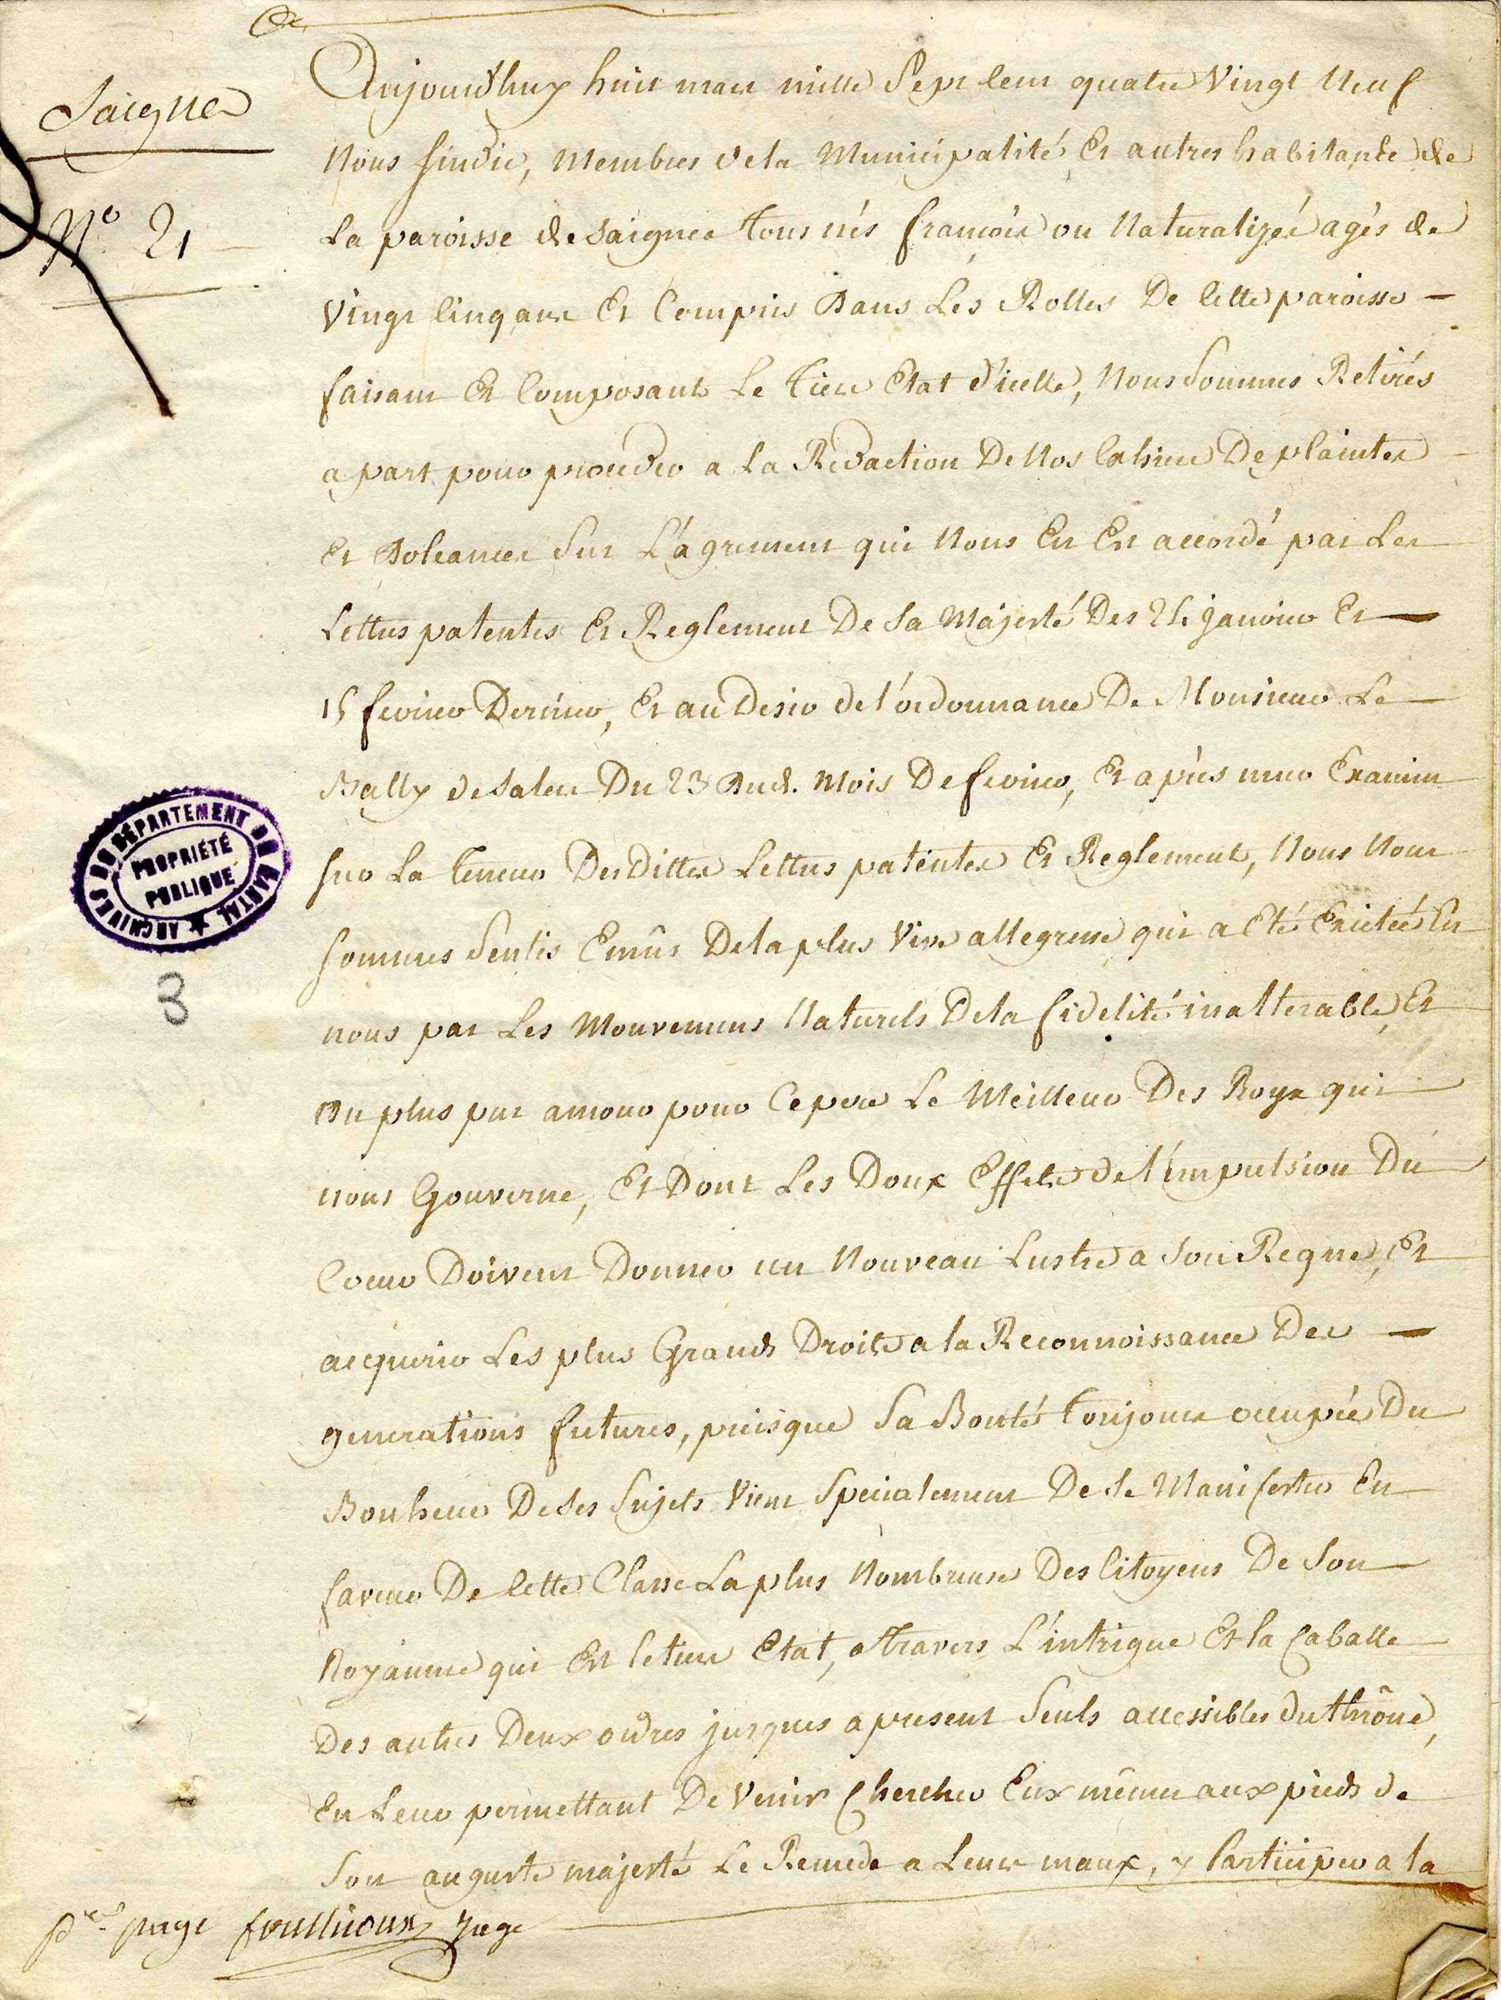 Saignes
N.o 21
Aujourd'huy huit mars mille Sept Cent quatre Vingt Neuf
Nous Sindic, Membres de la Municipalité, Et autres habitants de
La paroisse de Saignes tous nés françois ou Naturalizés agés de
Vingt Cinq ans Et Compris Dans Les Rolles De Cette paroisse –
faisant Et Composants Le tiers Etat d'icelle, Nous Sommes Retirés
a part pour proceder a La Redaction De Nos Cahiers De plaintes –
Et Doleances Sur L'agrement qui Nous En Est accordé par Les
Lettres patentes Et Reglement De Sa Majesté Des 24 janvier Et –
15 fevrier Dernier, Et au Desir de l'ordonnance De Monsieur Le –
Bailly de Salers Du 23 Dud. Mois De fevrier, Et après mur Examen
Sur La teneur Des Dittes Lettres patentes Et Reglement, Nous Nous
Sommes Sentis Emus De la plus Vive allegresse qui a Eté Excitée En
nous par Les Mouvemens Naturels De la fidelité inalterable, Et
Du plus pur amour pour Ce pere Le Meilleur Des Roys qui
nous Gouverne, Et Dont Les Doux Effets de l'impulsion Du
Coeur Doivent Donner un Nouveau Lustre a Son Regne, Et
acquerir Les plus Grands Droits a la Reconnoissance Des –
generations futures, puisque Sa Bonté toujours occupée Du
Bonheur De Ses Sujets Vient Specialement De Se Manifester En
faveur De Cette Classe La plus Nombreuse Des Citoyens De Son
Royaume qui Est le tiers Etat, a travers L'intrigue Et la Caballe
Des autres Deux ordres jusques a present Seuls accessibles du thrône,
En Leur permettant De Venir Chercher Eux mêmes aux pieds de
Son auguste majesté Le Remede a Leurs maux, y Participer a la
p.re page foullioux juge
ARCHIVES DU DÉPARTEMENT DU CANTAL
PROPRIÉTÉ
PUBLIQUE
3